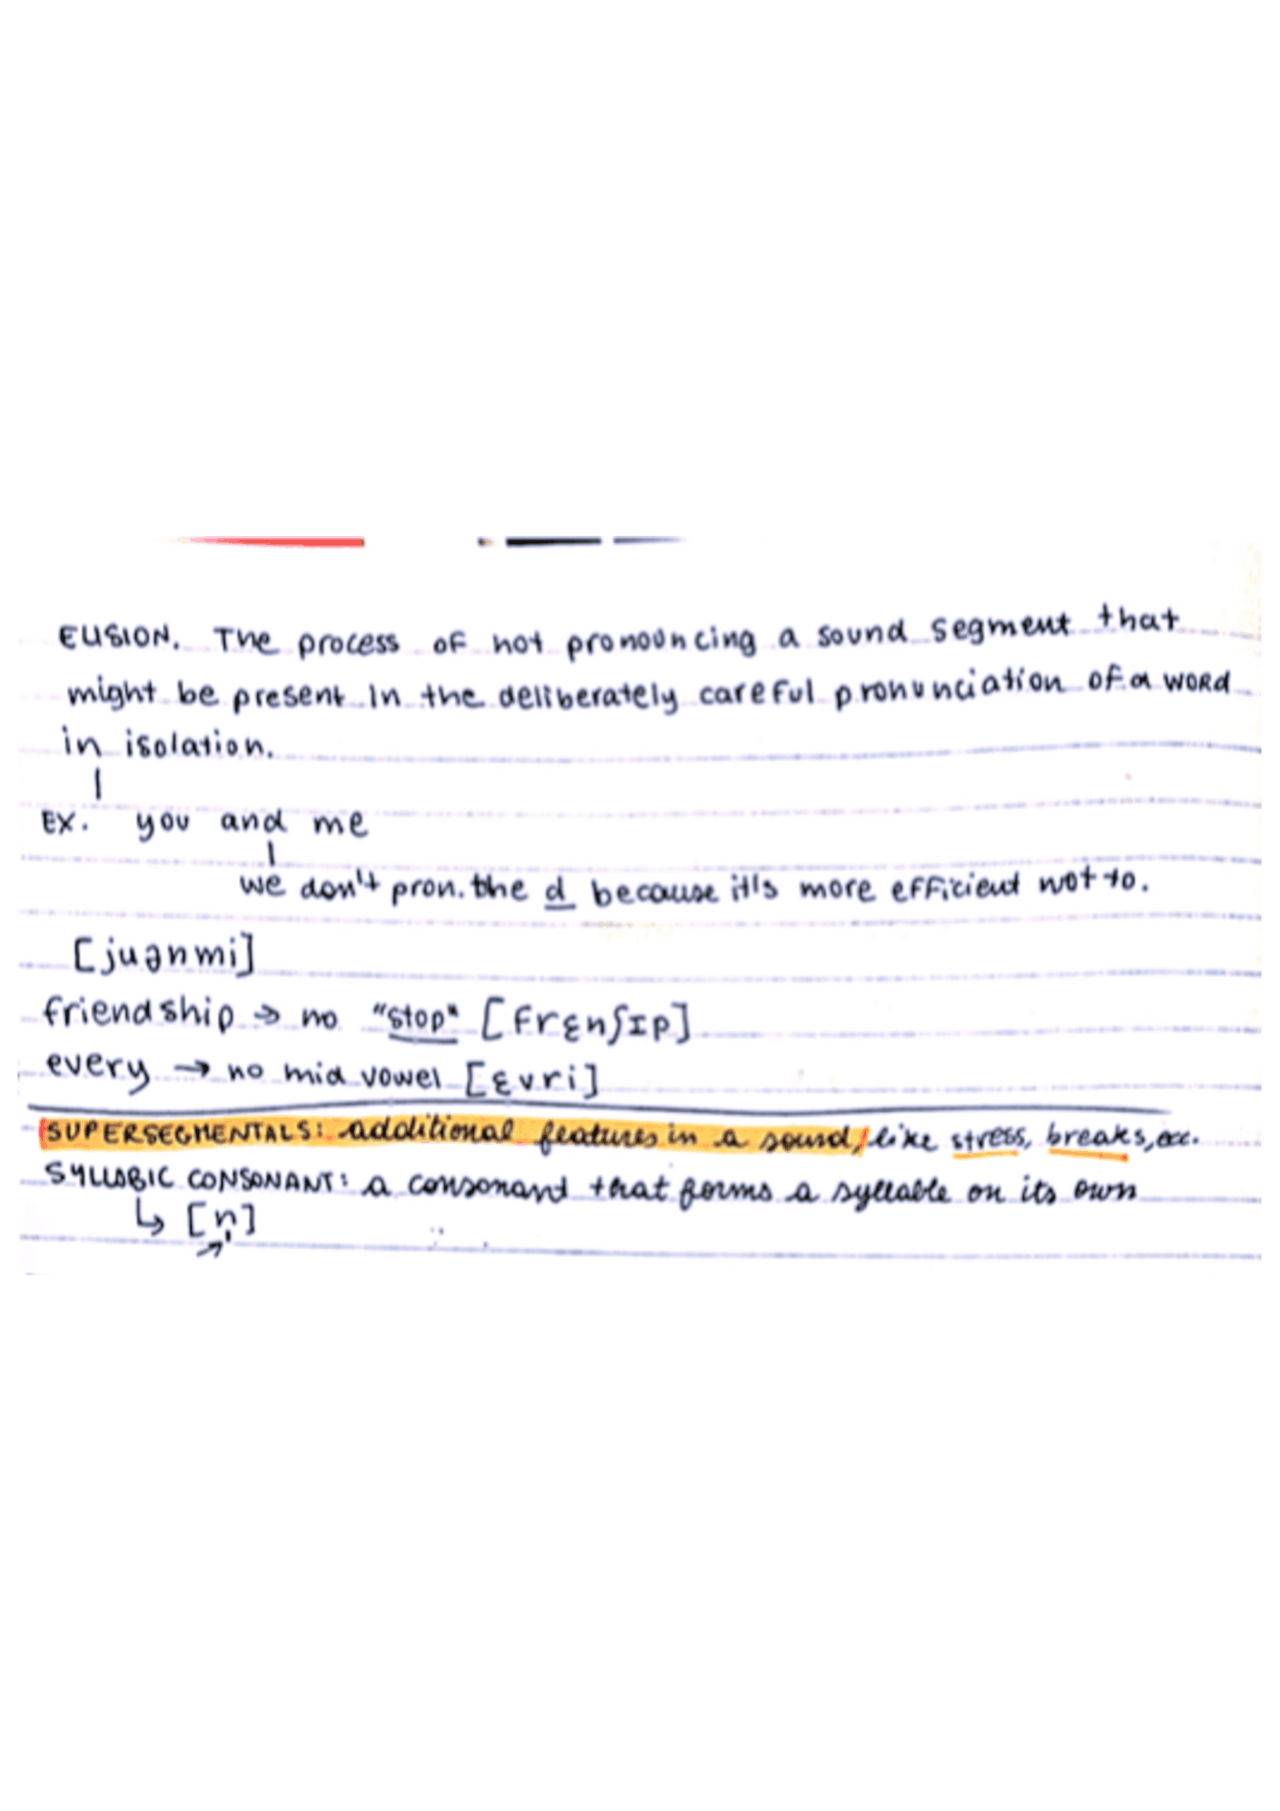 ELISION. The process of not pronouncing a sound segment that
might be present in the deliberately careful pronunciation of a word
in isolation.
EX. you and me
we don't pron. the d because it's more efficient not to.
[juənmi]
friendship → no "stop" [frɛnʃɪp]
every → no mid vowel [ɛvri]
SUPERSEGMENTALS: additional features in a sound, like stress, breaks, ecc.
SYLLABIC CONSONANT: a consonant that forms a syllable on its own
↳ [n̩]